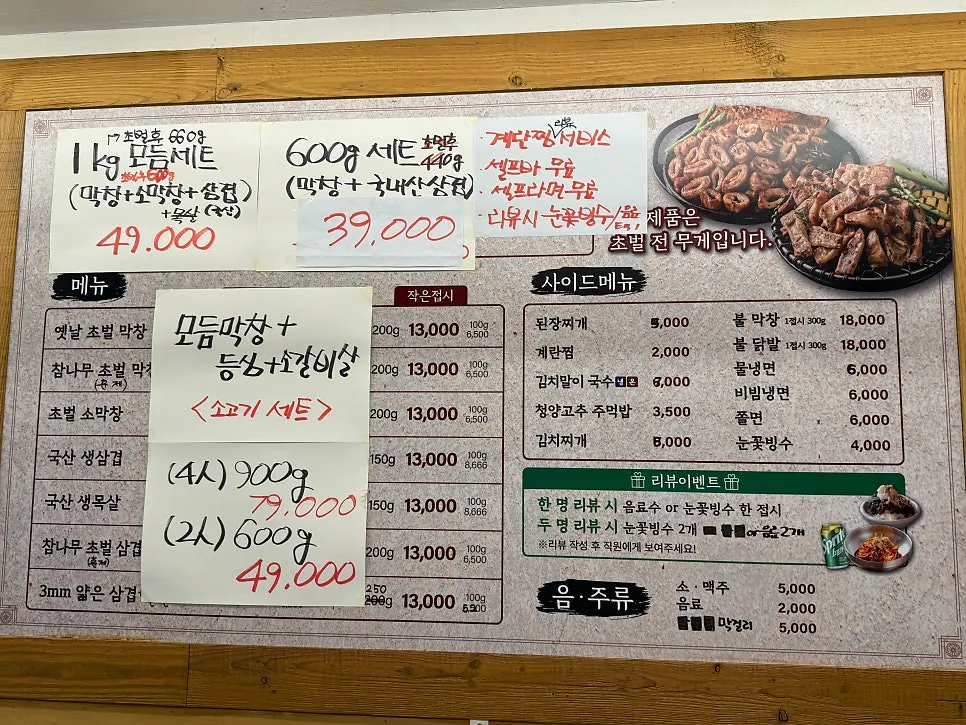 ↱ 초벌후 660g
1kg 모듬세트
(막창+소막창+삼겹)
+목살 (국산)
49.000
600g 세트 초벌후 440g
(막창 + 국내산삼겹)
39,000
· 계란찜 서비스
· 셀프바 무료
· 셀프라면 무료
· 리뷰시 눈꽃빙수/음료
제품은
초벌 전 무게입니다.
메뉴
작은접시
옛날 초벌 막창 200g 13,000 100g 6,500
참나무 초벌 막창 200g 13,000 100g 6,500
(훈제)
초벌 소막창 200g 13,000 100g 6,500
국산 생삼겹 150g 13,000 100g 8,666
국산 생목살 150g 13,000 100g 8,666
참나무 초벌 삼겹 200g 13,000 100g 6,500
(훈제)
3mm 얇은 삼겹 250 200g 13,000 100g
모듬막창 +
등심+소갈비살
<소고기 세트>
(4人) 900g
79.000
(2人) 600g
49.000
사이드메뉴
된장찌개 5,000
계란찜 2,000
김치말이 국수 냉 온 6,000
청양고추 주먹밥 3,500
김치찌개 6,000
불 막창 1접시 300g 18,000
불 닭발 1접시 300g 18,000
물냉면 6,000
비빔냉면 6,000
쫄면 6,000
눈꽃빙수 4,000
리뷰이벤트
한 명 리뷰 시 음료수 or 눈꽃빙수 한 접시
두 명 리뷰 시 눈꽃빙수 2개 or 음료2개
※리뷰 작성 후 직원에게 보여주세요!
Sprite
음·주류
소·맥주 5,000
음료 2,000
막걸리 5,000